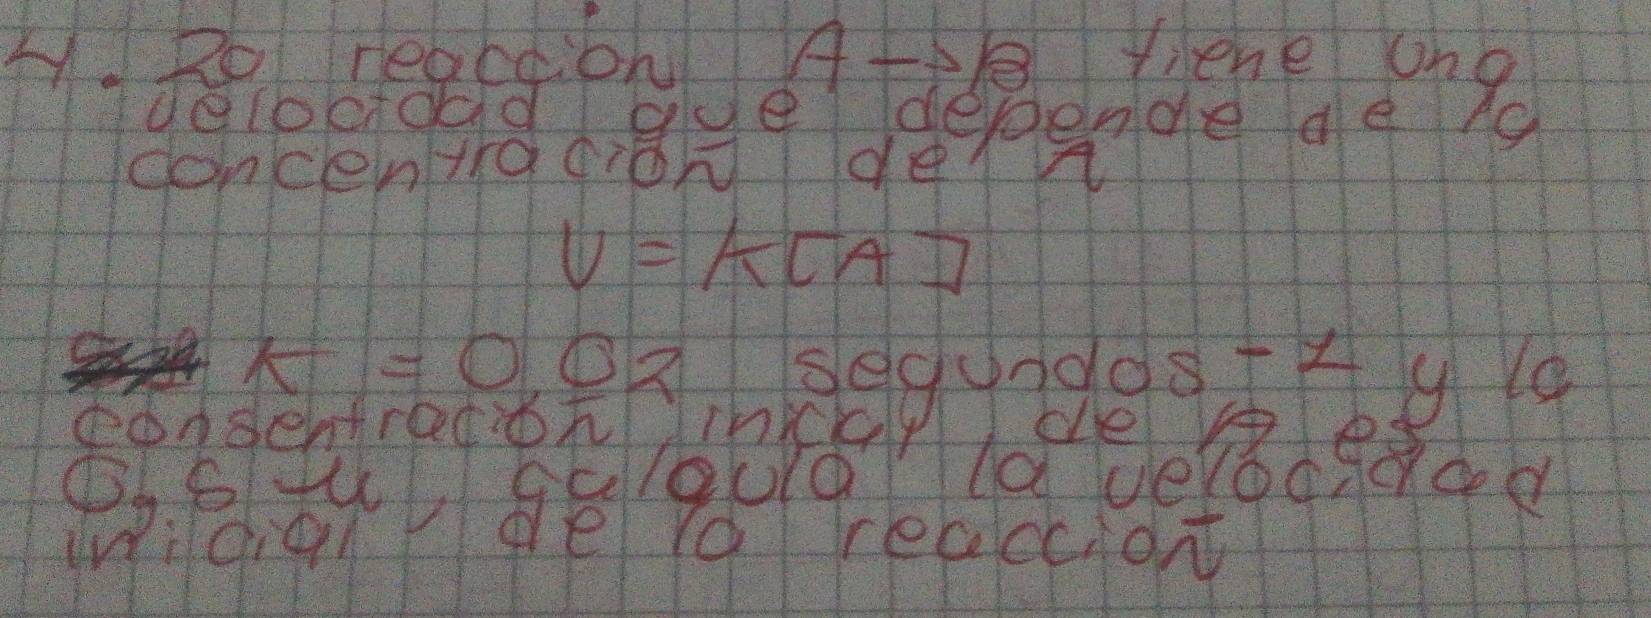 4. La reacción A → B tiene una
velocidad que depende de la
concentración de A
V = K[A]
K = 0,02 segundos -1 y la
consentración inicial de A es
0,5 M, calcula la velocidad
inicial de la reacción